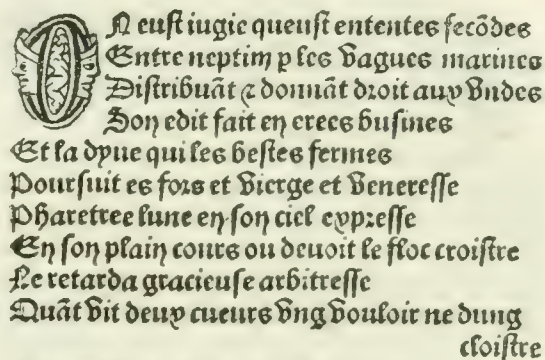 On eust iugie queust ententes secōdes
Entre neptim p les vagues marines
Distribuāt & donnāt droit aux vndes
Son edit fait en crees busines
Et la dyue qui les bestes fermes
Poursuit es fors et vierge et veneresse
Pharetree lune en son ciel expresse
En son plain cours ou deuoit le floc croistre
Le retarda gracieuse arbitresse
Quāt vit deux cueurs vng vouloir ne dung
cloistre